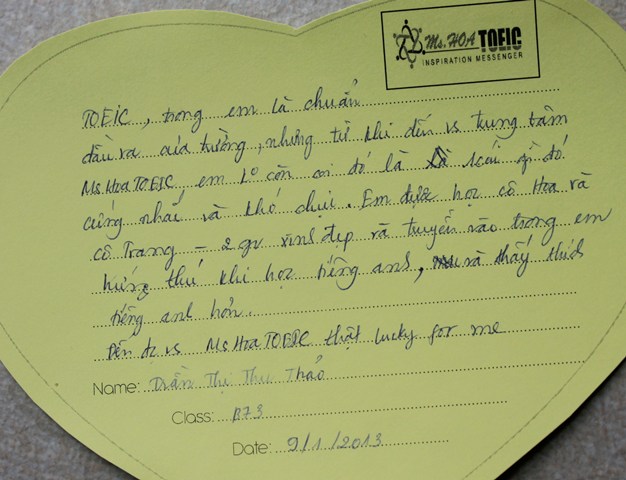 Ms. HOA TOEIC
INSPIRATION MESSENGER
TOEIC, trong em là chuẩn
đầu ra của trường, nhưng từ khi đến vs trung tâm
Ms Hoa TOEIC em ko còn coi đó là cái gì đó
cứng nhắc và khó chịu. Em được học cô Hoa và
cô Trang - 2 gv xinh đẹp và truyền vào trong em
hứng thú khi học tiếng anh, và thấy thích
tiếng anh hơn.
Đến đc vs Ms Hoa TOEIC thật lucky for me
Name: Trần Thị Thu Thảo
Class: A73
Date: 9/1/2013